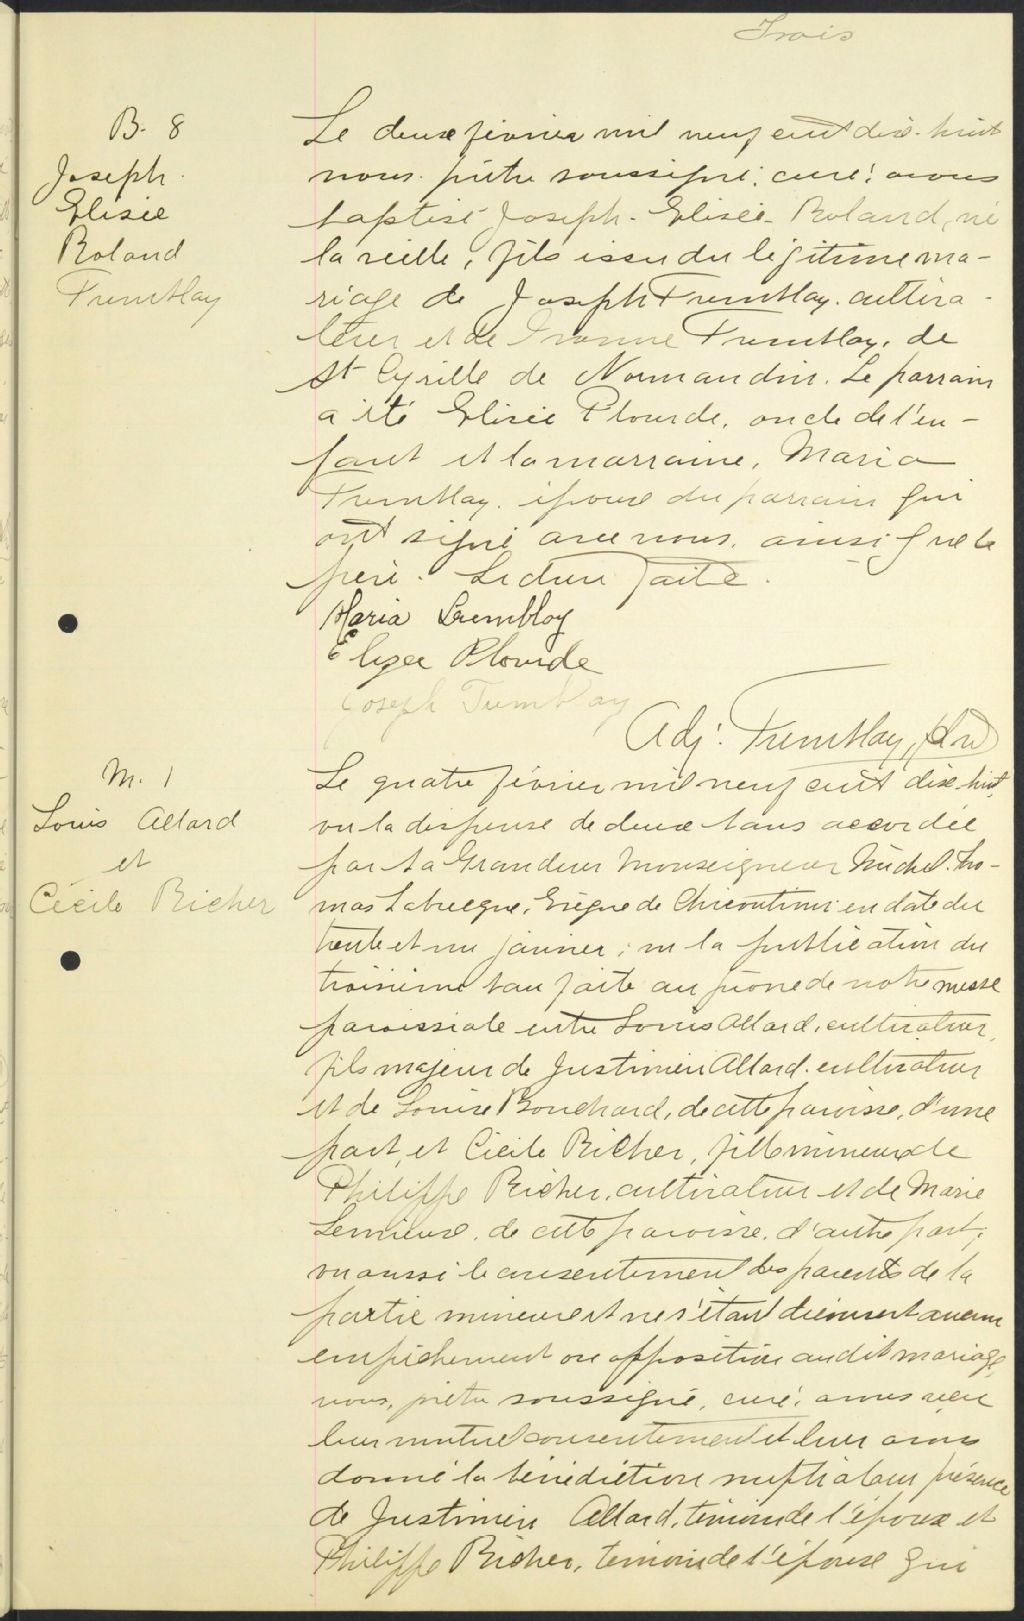 Trois
B. 8
Joseph
Elisée
Roland
Tremblay
Le deux février mil neuf cent dix-huit
nous prêtre soussigné, curé, avons
baptisé Joseph-Elisée-Roland, né
la veille, fils issu du légitime ma-
riage de Joseph Tremblay, cultiva-
teur et de Ivonne Tremblay, de
St Cyrille de Normandin. Le parrain
a été Elisée Plourde, oncle de l'en-
fant et la marraine, Maria
Tremblay, épouse du parrain qui
ont signé avec nous, ainsi que le
père. Lecture faite.
Maria Tremblay
Elizee Plourde
Joseph Tremblay
Adj. Tremblay, ptre
M. 1
Louis Allard
et
Cécile Richer
Le quatre février mil neuf cent dix-huit,
vu la dispense de deux bans accordée
par Sa Grandeur Monseigneur Michel Tho-
mas Labrecque, Evêque de Chicoutimi en date du
trente et un janvier; vu la publication du
troisième ban faite au prône de notre messe
paroissiale entre Louis Allard, cultivateur,
fils majeur de Justinien Allard, cultivateur
et de Louise Bouchard, de cette paroisse, d'une
part, et Cécile Richer, fille mineure de
Philippe Richer, cultivateur et de Marie
Lemieux, de cette paroisse, d'autre part;
vu aussi le consentement des parents de la
partie mineure et ne s'étant découvert aucun
empêchement ou opposition au dit mariage,
nous, prêtre soussigné, curé, avons reçu
leur mutuel consentement et leur avons
donné la bénédiction nuptiale en présence
de Justinien Allard, témoin de l'époux et
Philippe Richer, témoin de l'épouse qui